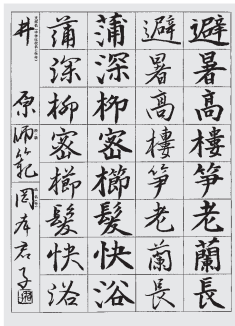 避暑高樓箏老蘭長
避暑高樓箏老蘭長
蒲深柳密櫛髮快浴
蒲深柳密櫛髮快浴
井原師範
岡本君子